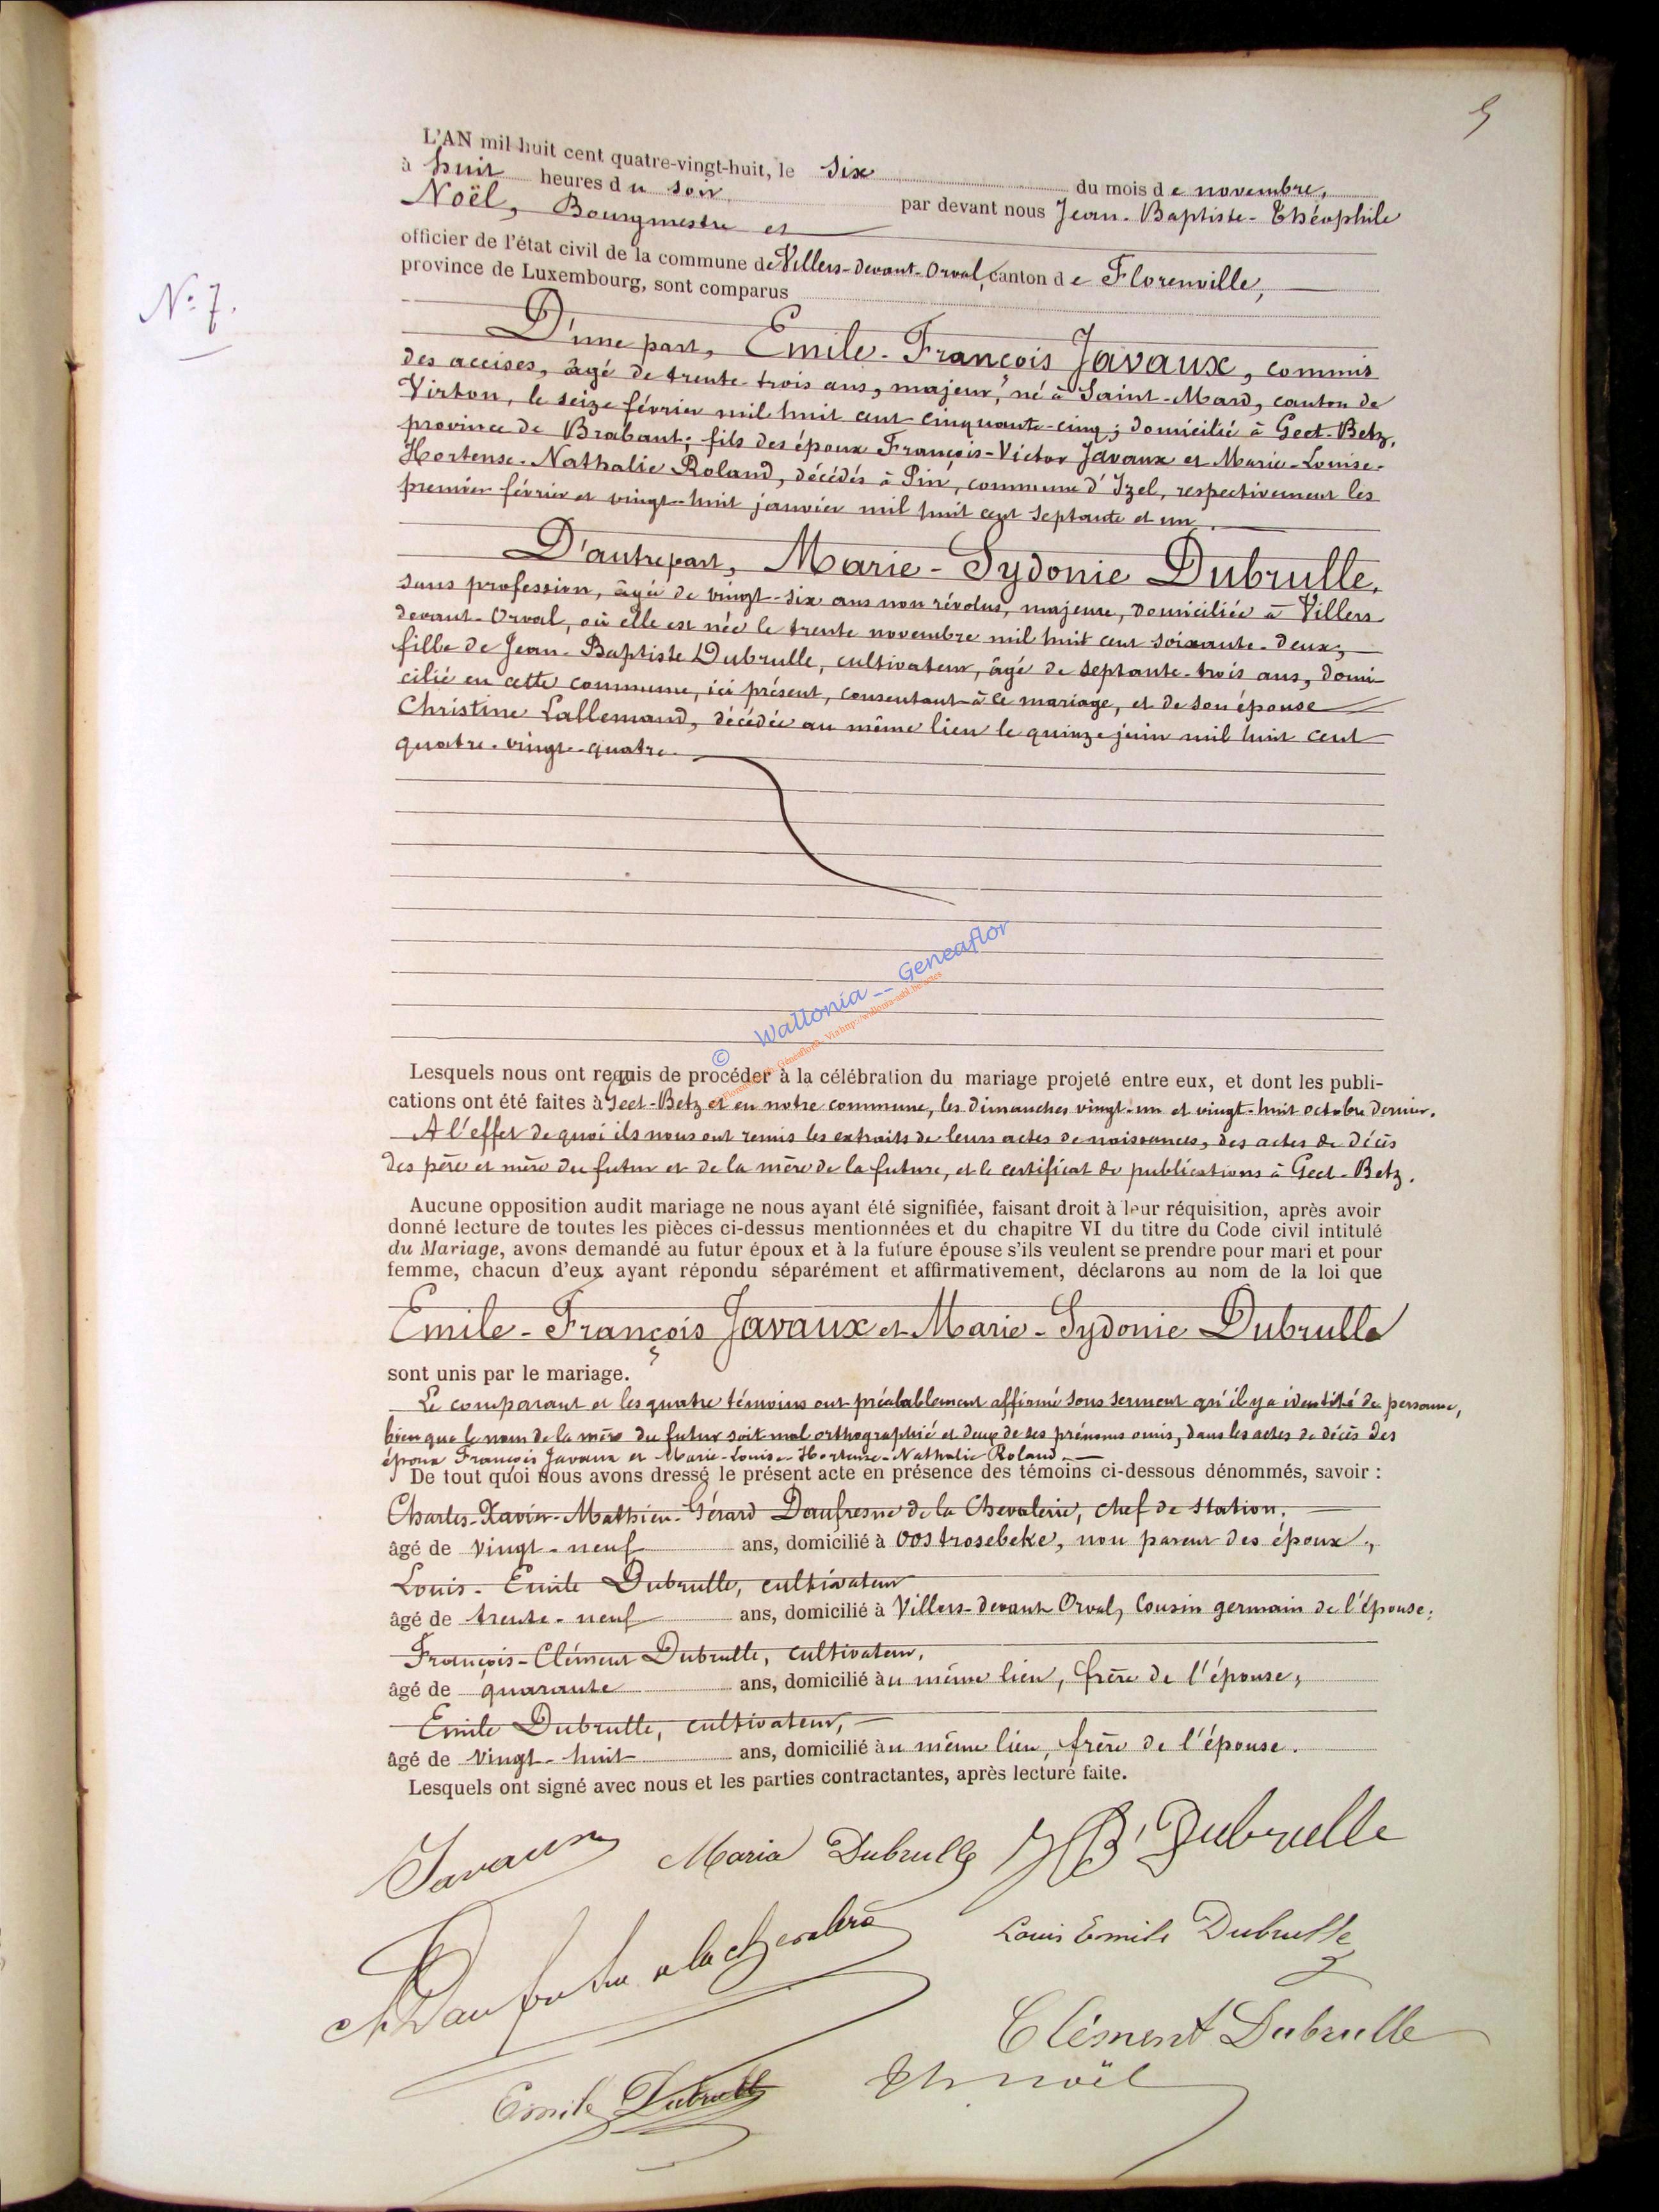 5
L'AN mil huit cent quatre-vingt-huit, le six du mois de novembre,
à huit heures du soir par devant nous Jean-Baptiste-Théophile
Noël, Bourgmestre et
officier de l'état civil de la commune de Villers-devant-Orval, canton de Florenville,
province de Luxembourg, sont comparus
N° 7.
D'une part, Emile-François Javaux, commis
des accises, âgé de trente-trois ans, majeur, né à Saint-Mard, canton de
Virton, le seize février mil huit cent cinquante-cinq; domicilié à Geet-Betz,
province de Brabant; fils des époux François-Victor Javaux et Marie-Louise-
Hortense-Nathalie Roland, décédés à Pin, commune d'Izel, respectivement les
premier février et vingt-huit janvier mil huit cent septante et un.
D'autre part, Marie-Sydonie Dubrulle,
sans profession, âgée de vingt-six ans non révolus, majeure, domiciliée à Villers
devant-Orval, où elle est née le trente novembre mil huit cent soixante-deux;
fille de Jean-Baptiste Dubrulle, cultivateur, âgé de septante-trois ans, domi-
cilié en cette commune, ici présent, consentant à ce mariage, et de son épouse
Christine Lallemand, décédée au même lieu le quinze juin mil huit cent
quatre-vingt-quatre.
© Wallonia -- Geneaflor
Lesquels nous ont requis de procéder à la célébration du mariage projeté entre eux, et dont les publi-
cations ont été faites à Geet-Betz et en notre commune, les dimanches vingt-un et vingt-huit octobre dernier.
A l'effet de quoi ils nous ont remis les extraits de leurs actes de naissances, des actes de décès
des père et mère du futur et de la mère de la future, et le certificat de publications à Geet-Betz.
Aucune opposition audit mariage ne nous ayant été signifiée, faisant droit à leur réquisition, après avoir
donné lecture de toutes les pièces ci-dessus mentionnées et du chapitre VI du titre du Code civil intitulé
du Mariage, avons demandé au futur époux et à la future épouse s'ils veulent se prendre pour mari et pour
femme, chacun d'eux ayant répondu séparément et affirmativement, déclarons au nom de la loi que
Emile-François Javaux et Marie-Sydonie Dubrulle
sont unis par le mariage.
Le comparant et les quatre témoins ont préalablement affirmé sous serment qu'il y a identité de personne,
bien que le nom de la mère du futur soit mal orthographié et deux de ses prénoms omis, dans les actes de décès des
époux François Javaux et Marie-Louise-Hortense-Nathalie Roland.
De tout quoi nous avons dressé le présent acte en présence des témoins ci-dessous dénommés, savoir :
Charles-Xavier-Mathieu-Gérard Daufresne de la Chevalerie, chef de station,
âgé de vingt-neuf ans, domicilié à Oostrosebeke, non parent des époux;
Louis-Emile Dubrulle, cultivateur
âgé de trente-neuf ans, domicilié à Villers-devant Orval, cousin germain de l'épouse;
François-Clément Dubrulle, cultivateur,
âgé de quarante ans, domicilié au même lieu, frère de l'épouse;
Emile Dubrulle, cultivateur,
âgé de vingt-huit ans, domicilié au même lieu, frère de l'épouse.
Lesquels ont signé avec nous et les parties contractantes, après lecture faite.
Javaux Maria Dubrulle JB Dubrulle
Louis Emile Dubrulle
Clément Dubrulle
Emile Dubrulle Th Noël